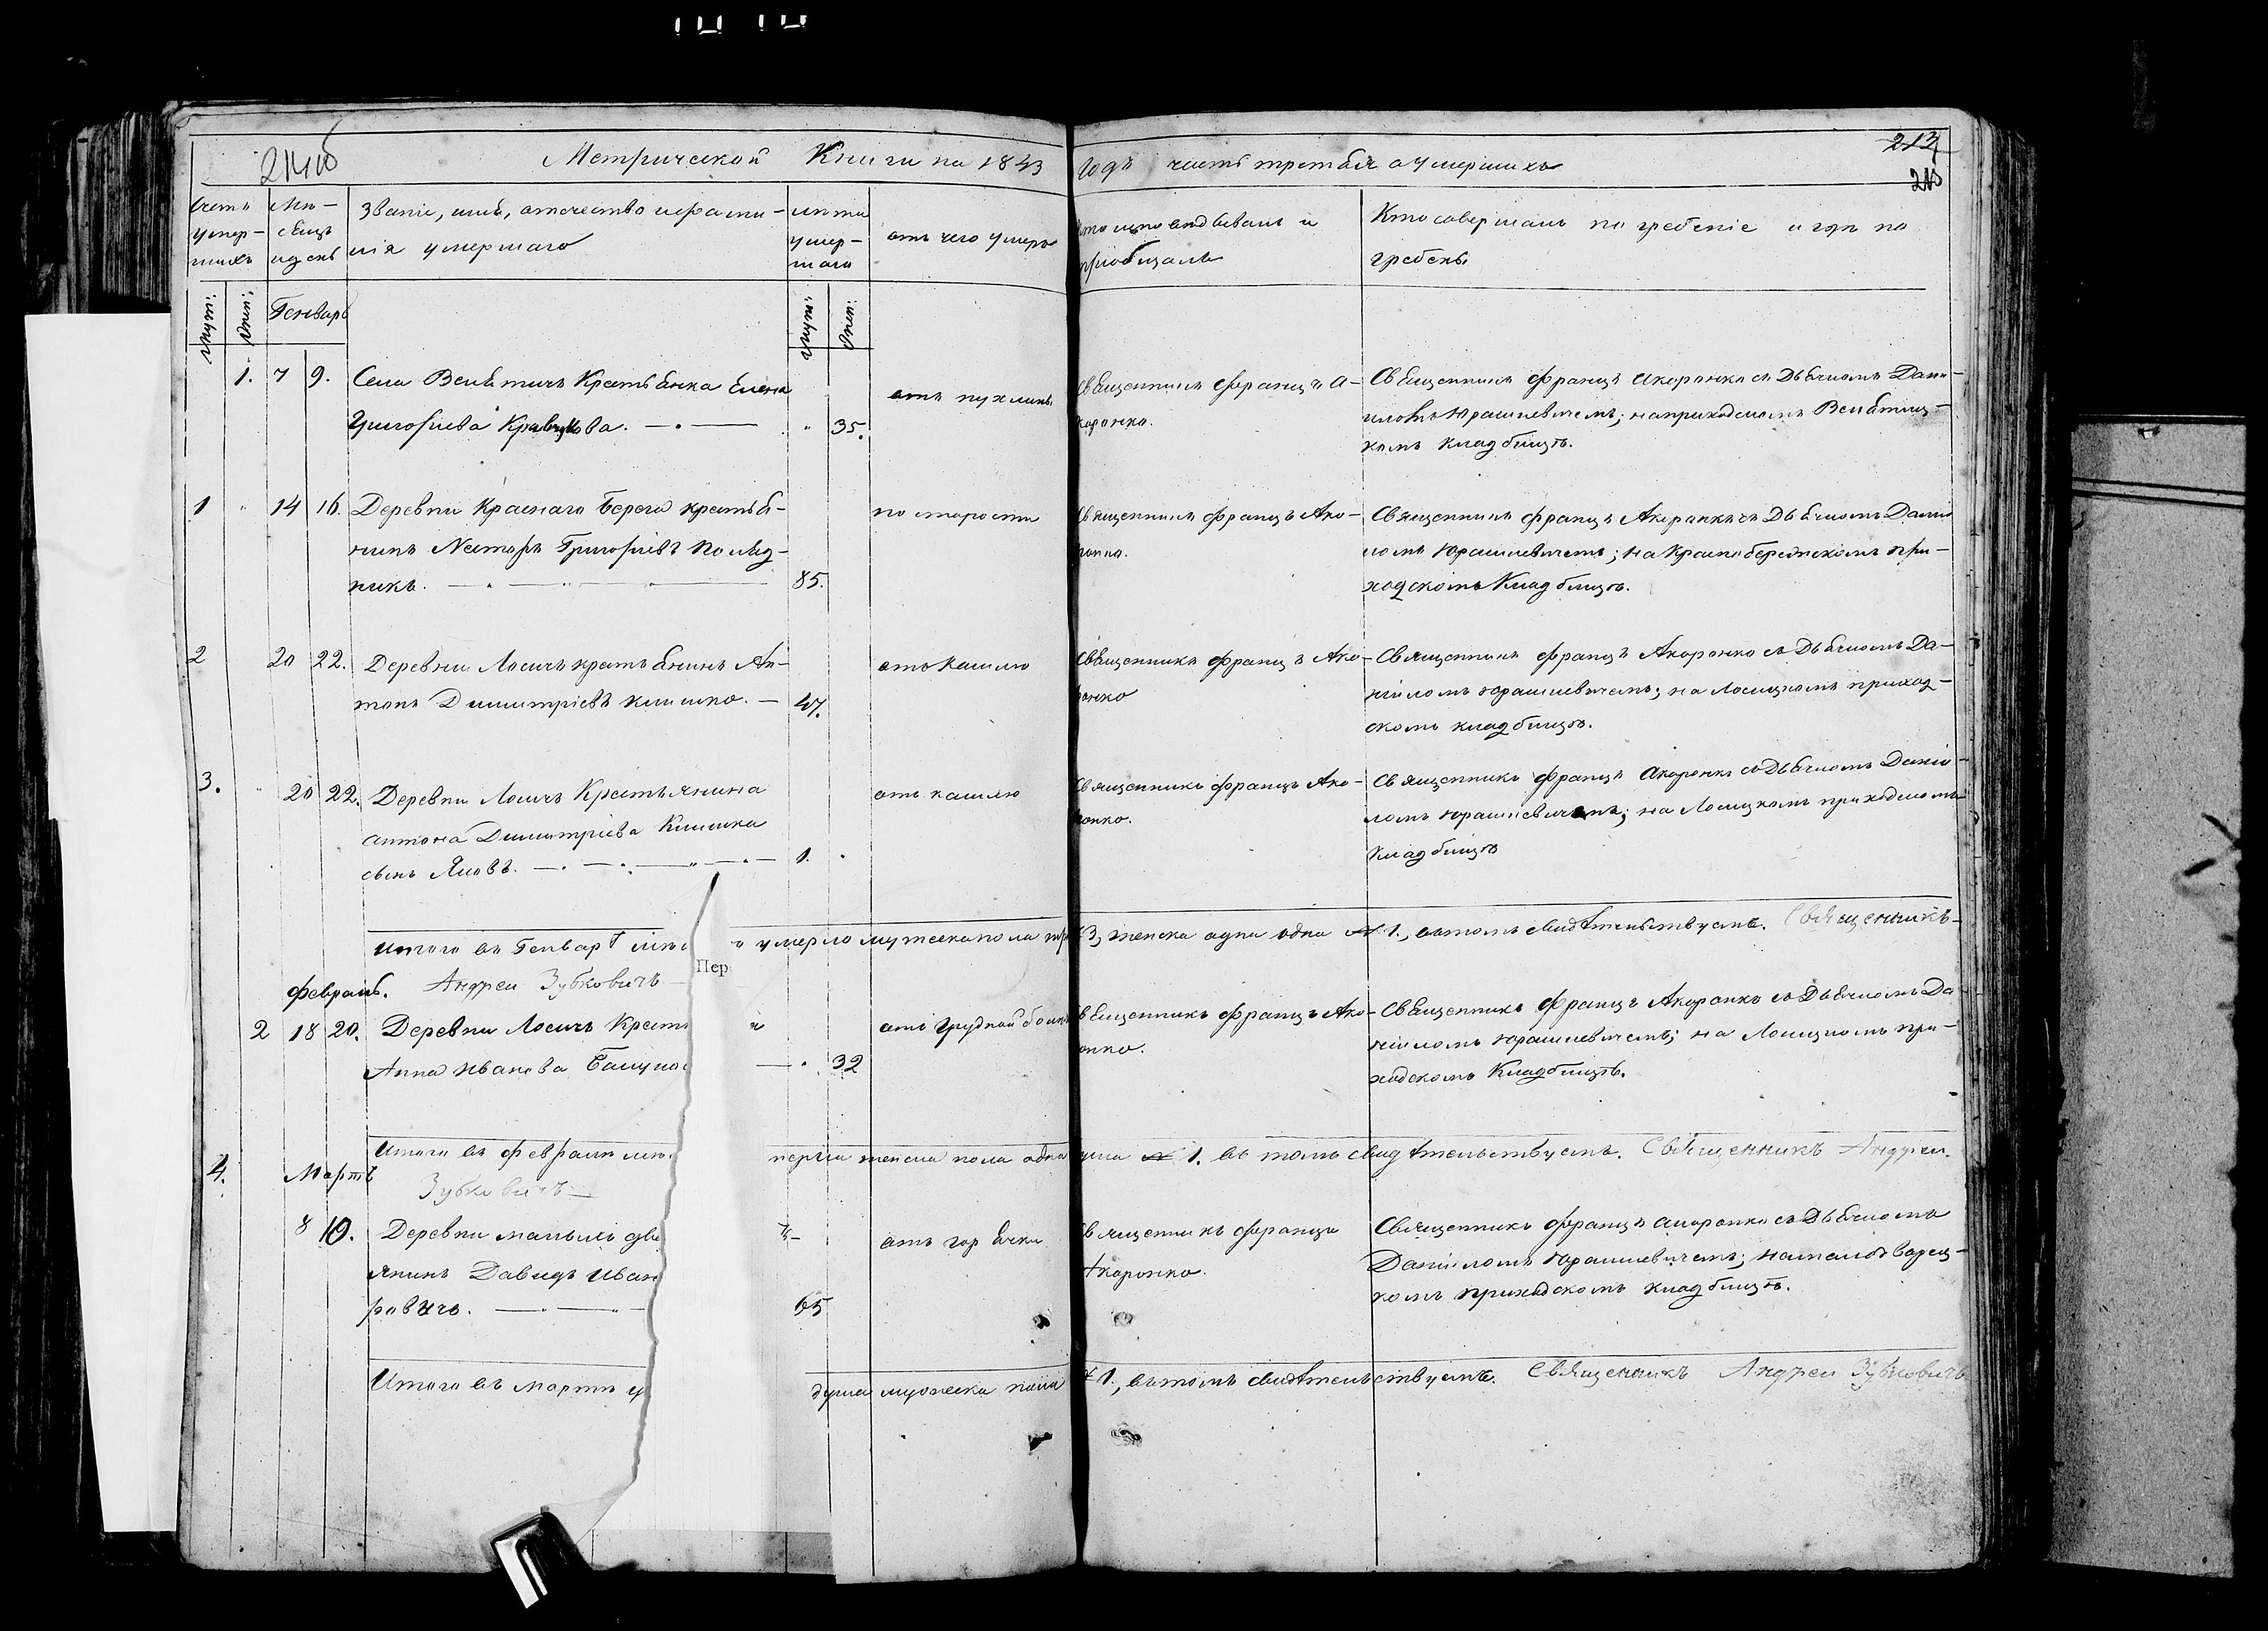 Метрической Книги на 1843
Годъ часть третья о умершихъ
213
Счетъ умер-шихъ
Мѣ-сяцъ и день
Званіе, имя, отчество и фами-
лія умершаго
лѣта умер-шаго
отъ чего умеръ
Кто исповѣдывалъ и
пріобщалъ
Кто совершалъ погребеніе и гдѣ по
гребены
муж: жен: Генварь муж: жен:
1. 7 9. Села Велятичъ Крестьянка Елена
Григорьева . 35.
отъ пухлины
Священникъ Францъ А-
коронко.
Священникъ Францъ Акоронко съ Дьячкомъ Дані-
иломъ Юрашкевичемъ; на приходскомъ Велятиц-
комъ Кладбищѣ.
1 14 16. Деревни Краснаго Берега крестья-
нинъ Несторъ Григорьевъ
никъ. 85.
по старости
Священникъ Францъ Ако-
ронко.
Священникъ Францъ Акоронко съ Дьячкомъ Даніи
ломъ Юрашкевичемъ; на Краснобережскомъ при-
ходскомъ Кладбищѣ.
2 20 22. Деревни Лосичъ крестьянинъ Ан-
тонъ Димитріевъ Климко. 47.
отъ кашлю
Священникъ Францъ Ако-
ронко
Священникъ Францъ Акоронко съ Дьячкомъ Да-
ніиломъ Юрашкевичемъ; на Лосицкомъ приход-
скомъ кладбищѣ.
3. 20 22. Деревни Лосичъ Крестьянина
Антона Димитріева Климка
сынъ Яковъ. 1.
отъ кашлю
Священникъ Францъ Ако-
ронко.
Священникъ Францъ Акоронко съ Дьячкомъ Даніи-
ломъ Юрашкевичемъ; на Лосицкомъ приходскомъ
Кладбищѣ
Итого въ Генварѣ умерло мужеска пола 3, женска одна одна 1., въ томъ свидѣтельствуемъ. Священникъ
Андрей Зубковичъ
Пер
Февраль.
2 18 20. Деревни Лосичъ Крест
Анна Иванова 32
отъ грудной
Священникъ Францъ Ако-
ронко.
Священникъ Францъ Акоронко съ Дьячкомъ Да-
ніиломъ Юрашкевичемъ; на Лосицкомъ при-
ходскомъ Кладбищѣ.
Итого въ Февралѣ женска пола одна душа 1. въ томъ свидѣтельствуемъ. Священникъ Андрей.
Зубковичъ
Мартъ
4. 8 10. Деревни
янинъ Давидъ Иван
ровичъ. 65
отъ горячки
Священникъ Францъ
Акоронко.
Священникъ Францъ Акоронко съ Дьячкомъ
Даніиломъ Юрашкевичемъ;
комъ приходскомъ кладбищѣ.
Итого въ мартѣ у душа мужеска пола 1., въ томъ свидѣтельствуемъ. Священникъ Андрей Зубковичъ